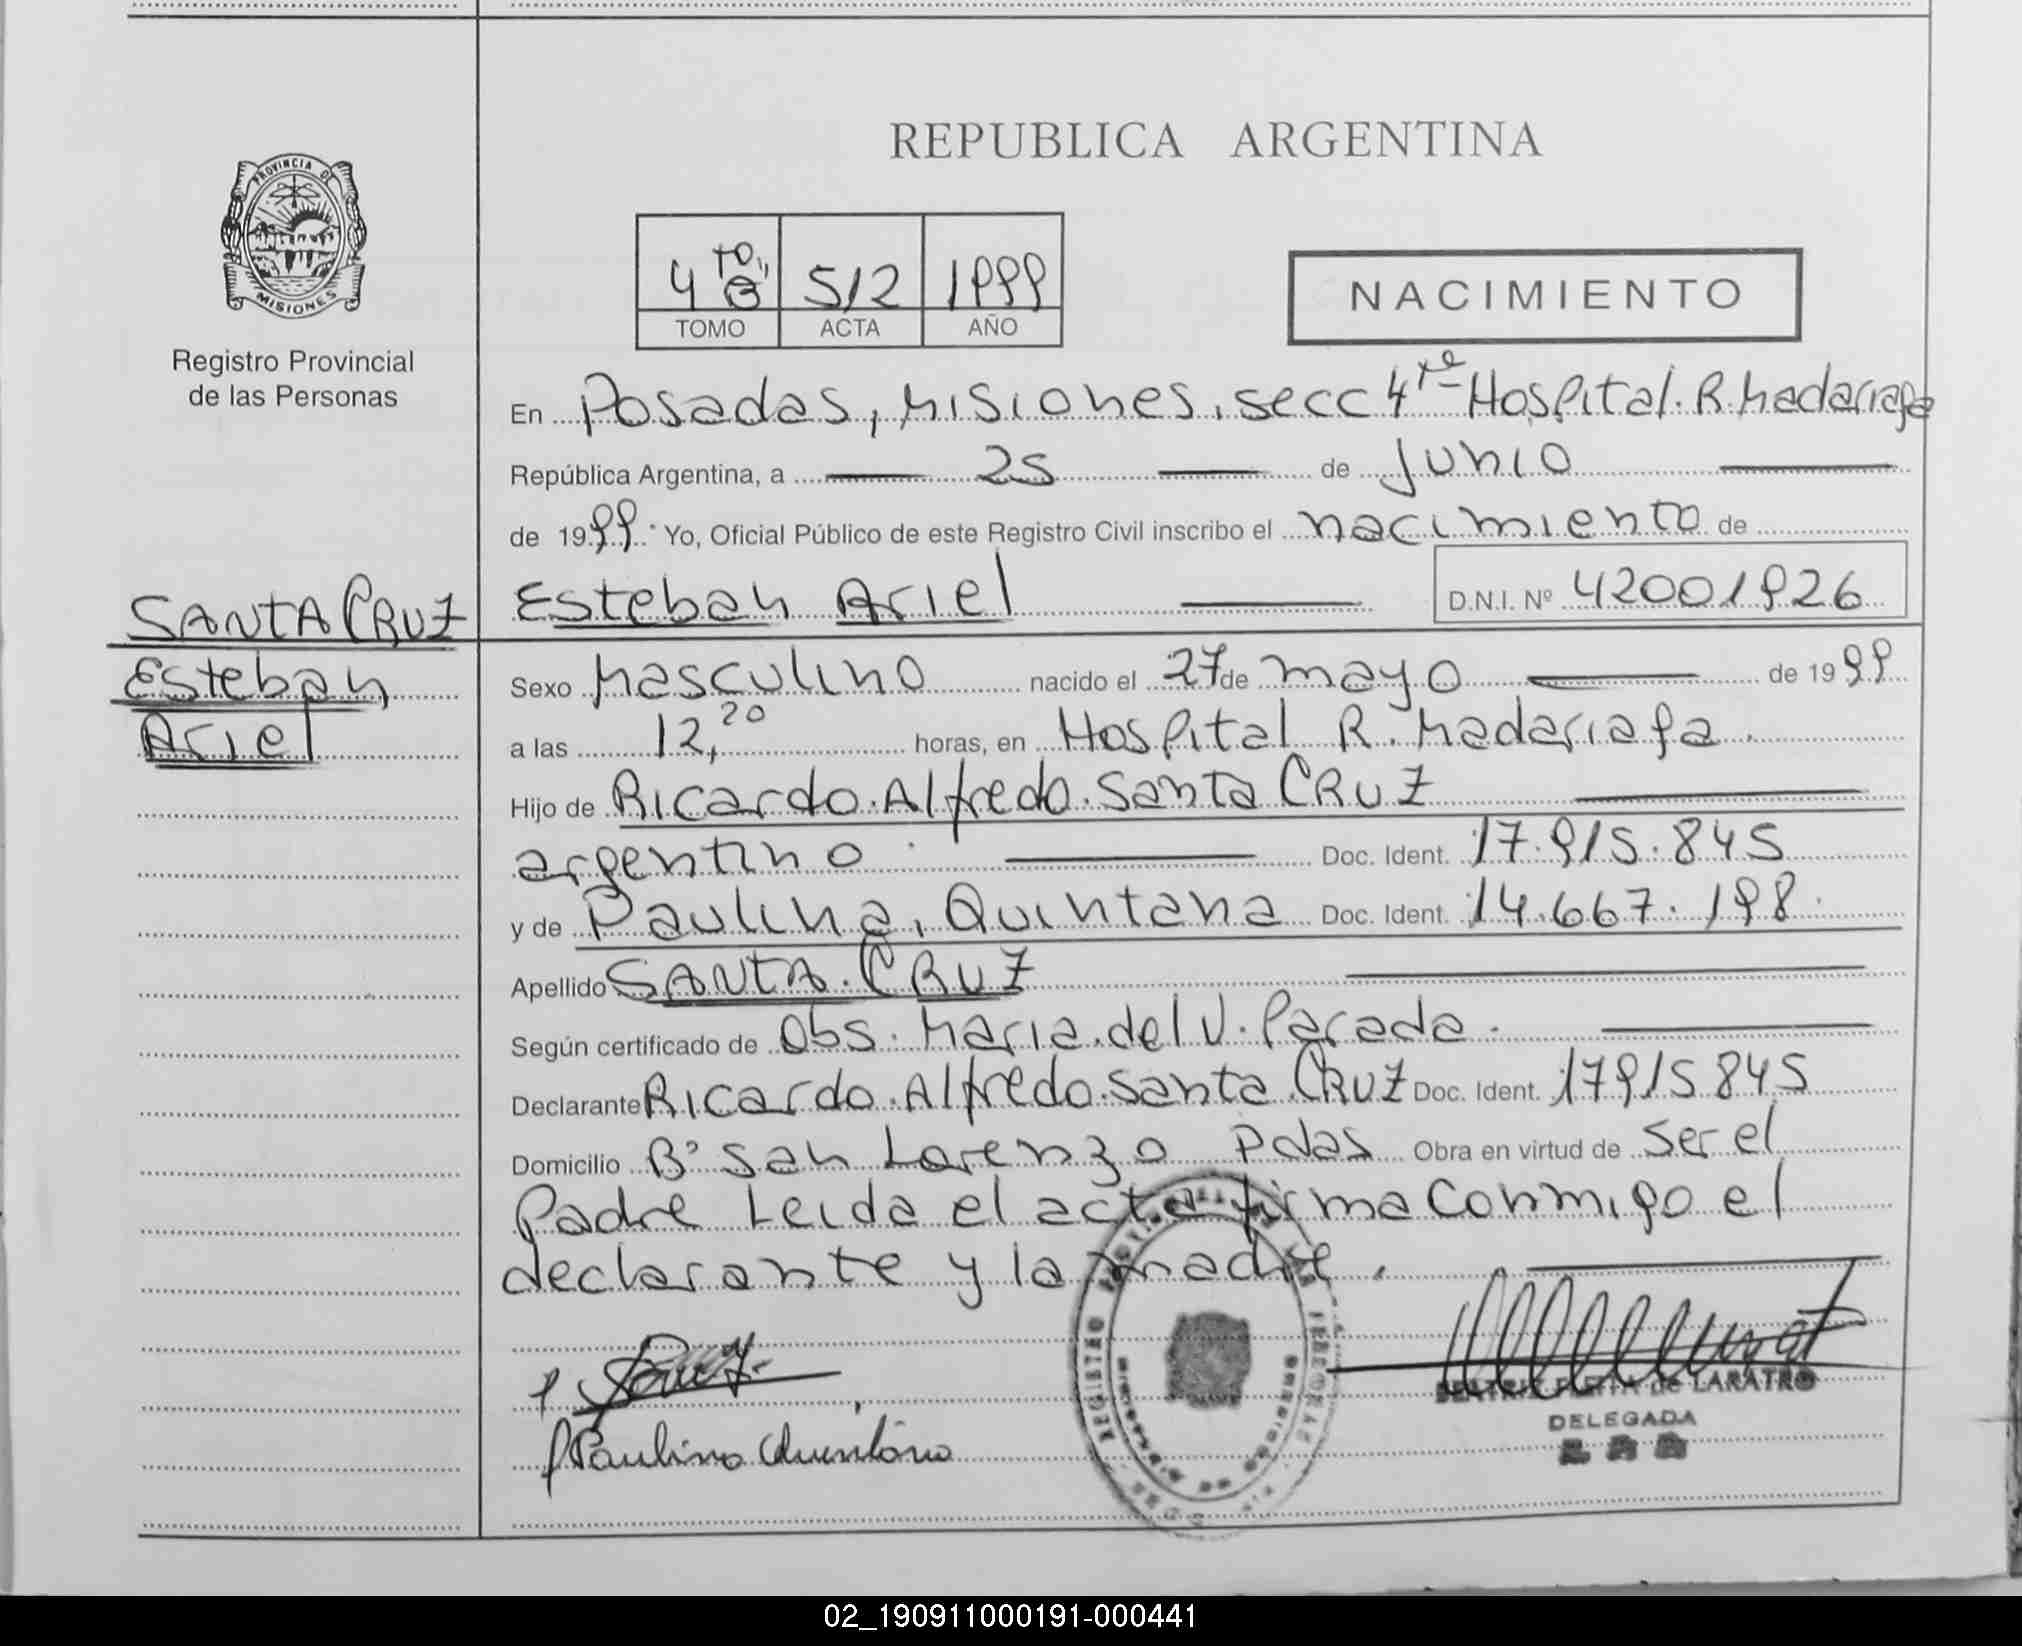 REPUBLICA ARGENTINA
PROVINCIA DE
MISIONES
Registro Provincial
de las Personas
4to "B" 512 1999
TOMO ACTA AÑO
NACIMIENTO
En Posadas, Misiones, secc 4ta Hospital. R. Madariaga
República Argentina, a 25 de Junio
de 1999. Yo, Oficial Público de este Registro Civil inscribo el nacimiento de
Esteban Ariel D.N.I. Nº 42001926
SANTA CRUZ
Esteban
Ariel
Sexo Masculino nacido el 27 de mayo de 1999
a las 12,20 horas, en Hospital R. Madariaga.
Hijo de Ricardo. Alfredo. Santa CRUZ
argentino. Doc. Ident. 17.915.845
y de Paulina, Quintana Doc. Ident. 14.667.198.
Apellido SANTA. CRUZ
Según certificado de Obs. Maria. del V. Parada.
Declarante Ricardo. Alfredo. Santa. CRUZ Doc. Ident. 17915845
Domicilio Bº San Lorenzo Pdas Obra en virtud de ser el
Padre Leida el acta firma conmigo el
declarante y la madre.
Paulina Quintana
REGISTRO
BEATRIZ de LARATRO
DELEGADA
02_190911000191-000441